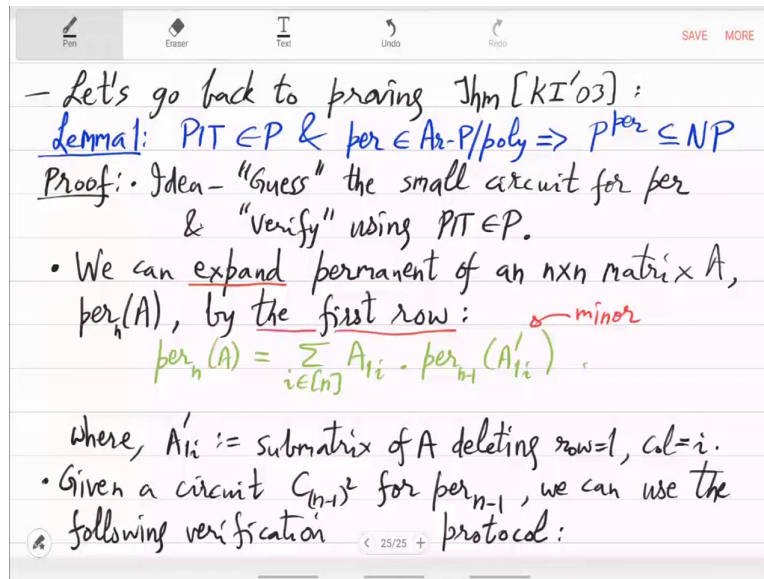 Pen Eraser Text Undo Redo SAVE MORE
- Let's go back to proving Thm [KI'03] :
Lemma1: PIT ∈ P & per ∈ Ar-P/poly ⇒ P^per ⊆ NP
Proof: • Idea – "Guess" the small circuit for per
& "Verify" using PIT ∈ P.
• We can expand permanent of an n×n matrix A,
per_n(A), by the first row :
minor
per_n(A) = Σ_{i∈[n]} A_{1i} · per_{n-1}(A'_{1i}) .
where, A'_{1i} := submatrix of A deleting row=1, col=i.
• Given a circuit C_{(n-1)^2} for per_{n-1}, we can use the
following verification protocol :
< 25/25 +